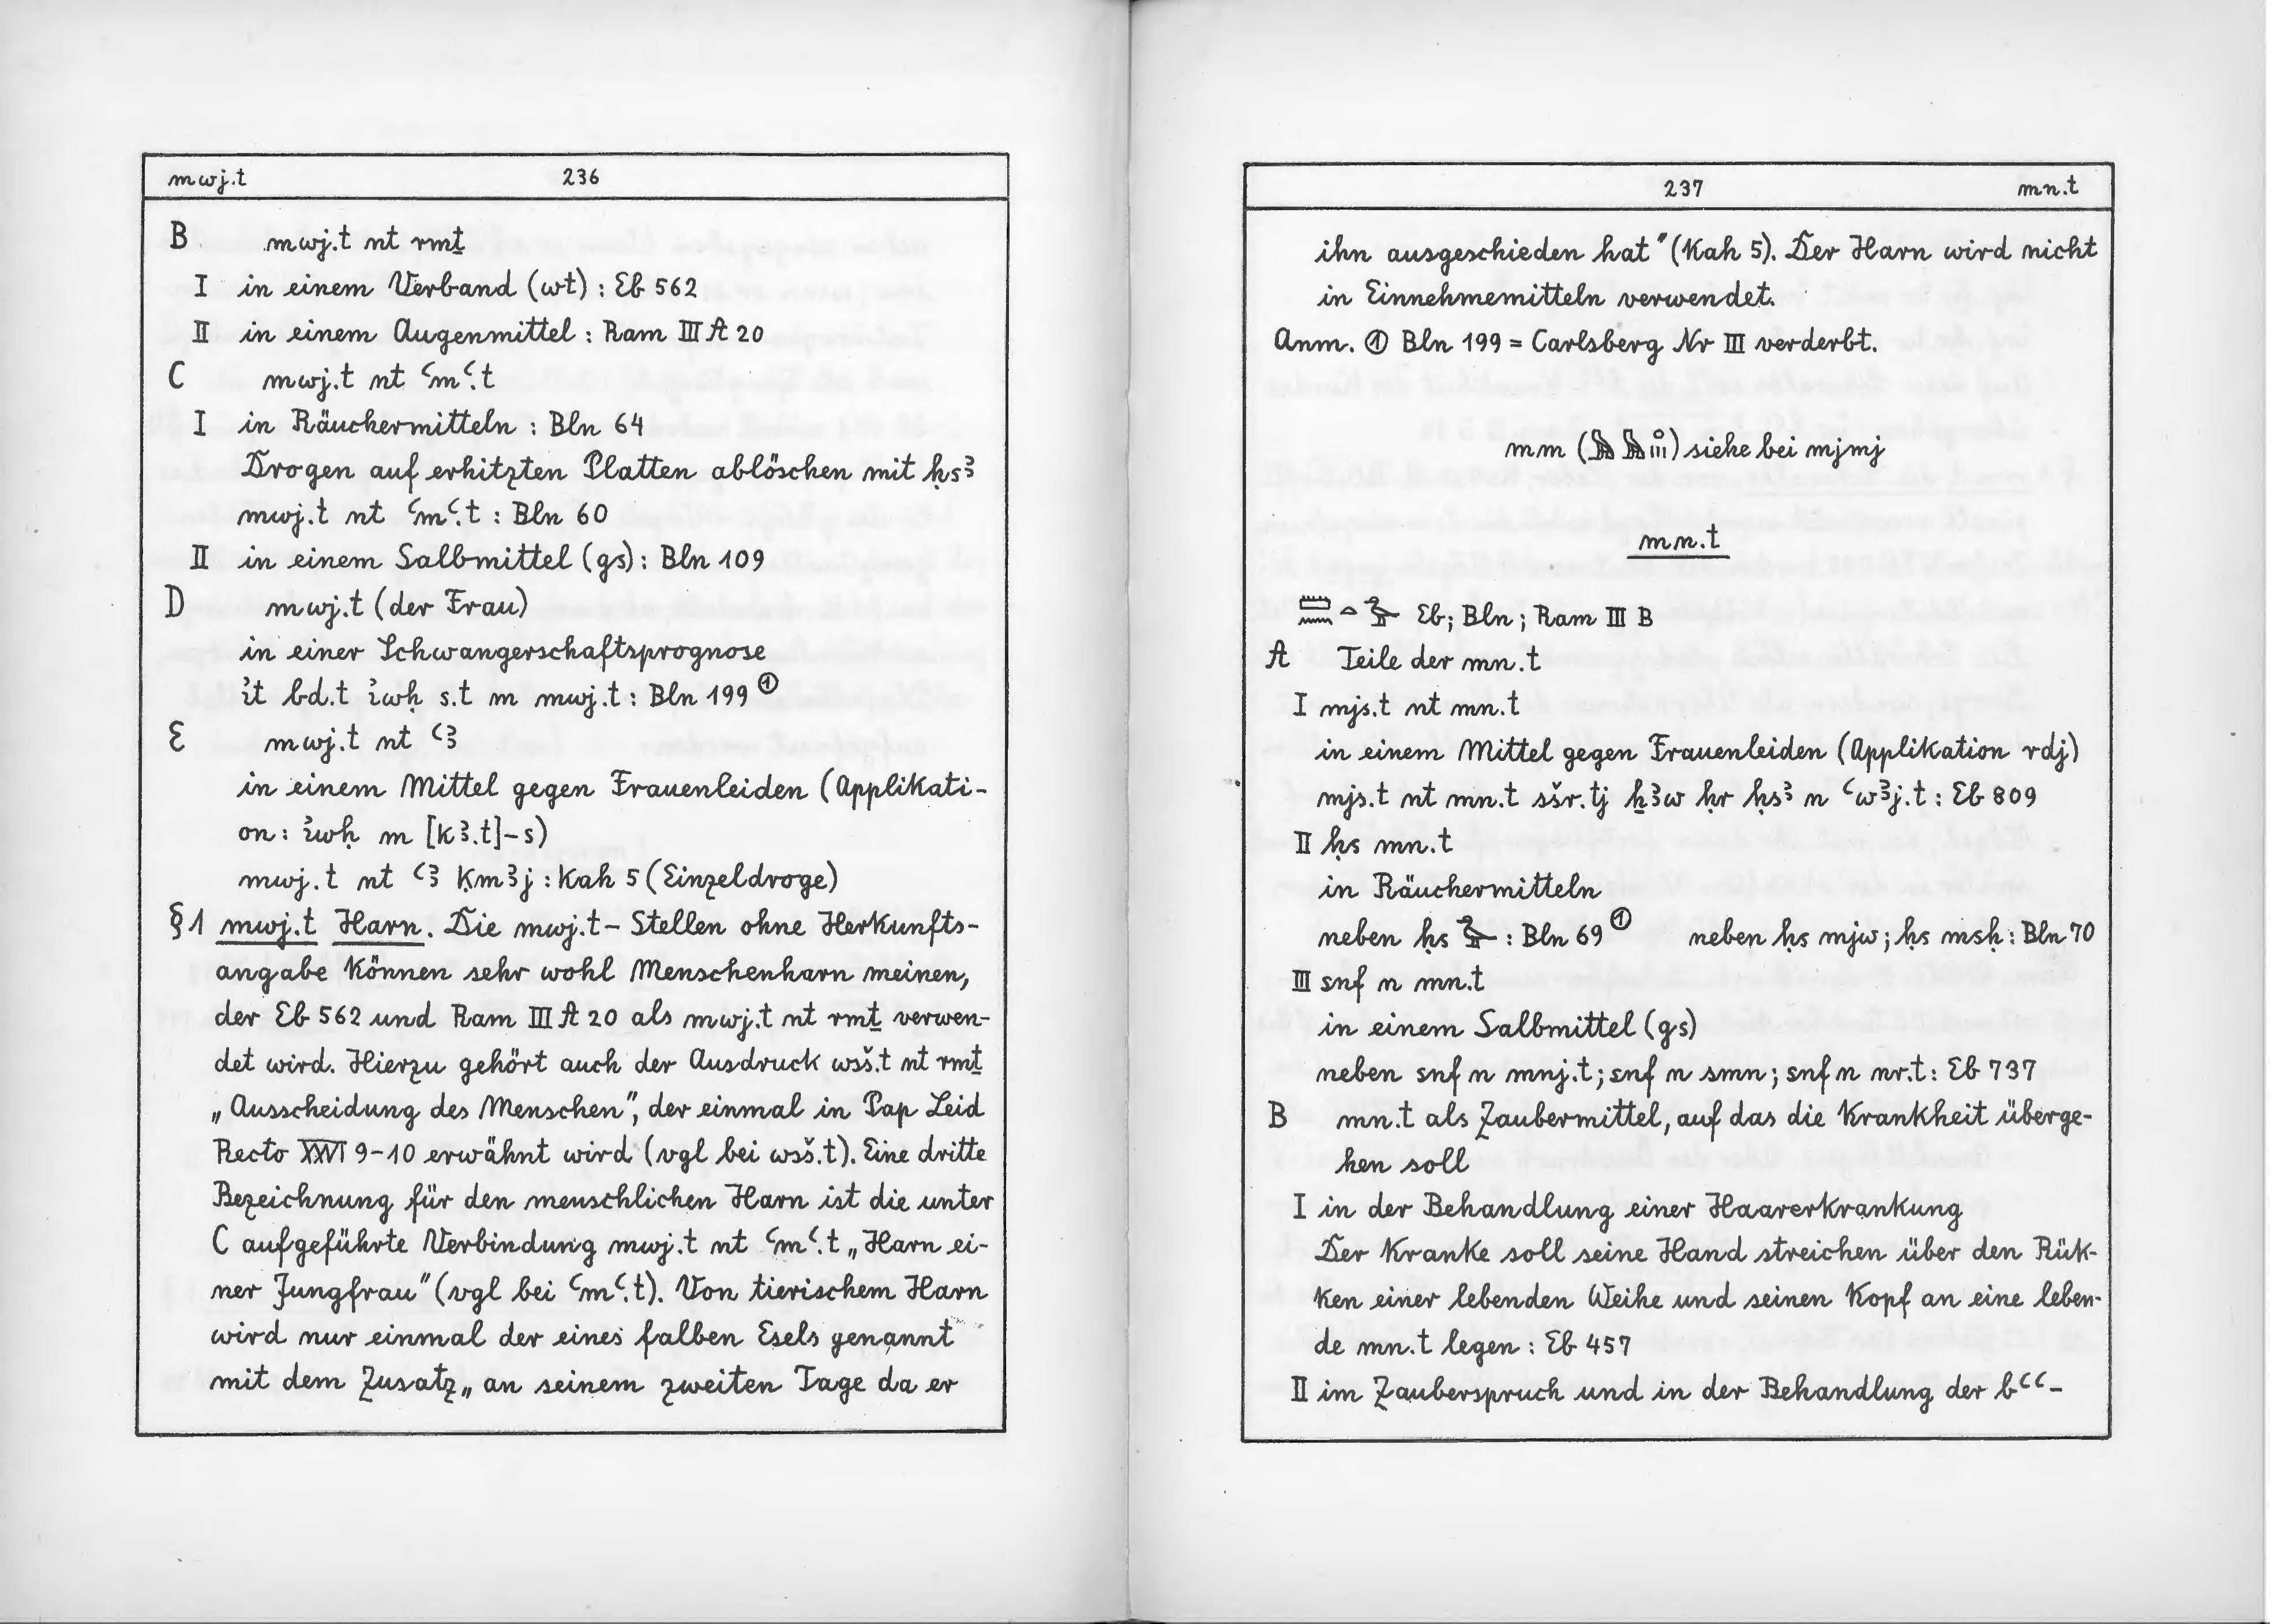 mwj.t 236
B mwj.t nt rmṯ
I in einem Verband (wt) : Eb 562
II in einem Augenmittel : Ram III A 20
C mwj.t nt ꜥmꜥ.t
I in Räuchermitteln : Bln 64
Drogen auf erhitzten Platten ablöschen mit ḥsꜣ
mwj.t nt ꜥmꜥ.t : Bln 60
II in einem Salbmittel (gs) : Bln 109
D mwj.t (der Frau)
in einer Schwangerschaftsprognose
ꞽt bd.t ꞽwḥ s.t m mwj.t : Bln 199 ①
E mwj.t nt ꜥꜣ
in einem Mittel gegen Frauenleiden (Applikati-
on : ꞽwḥ m [kꜣ.t]-s)
mwj.t nt ꜥꜣ ḳmꜣj : Kah 5 (Einzeldroge)
§ 1 mwj.t Harn. Die mwj.t-Stellen ohne Herkunfts-
angabe können sehr wohl Menschenharn meinen,
der Eb 562 und Ram III A 20 als mwj.t nt rmṯ verwen-
det wird. Hierzu gehört auch der Ausdruck wsš.t nt rmṯ
„Ausscheidung des Menschen", der einmal in Pap Leid
Recto XXVI 9-10 erwähnt wird (vgl bei wsš.t). Eine dritte
Bezeichnung für den menschlichen Harn ist die unter
C aufgeführte Verbindung mwj.t nt ꜥmꜥ.t „Harn ei-
ner Jungfrau" (vgl bei ꜥmꜥ.t). Von tierischem Harn
wird nur einmal der eines falben Esels genannt
mit dem Zusatz „an seinem zweiten Tage da er
237 mn.t
ihn ausgeschieden hat" (Kah 5). Der Harn wird nicht
in Einnehmemitteln verwendet.
Anm. ① Bln 199 = Carlsberg Nr III verderbt.
mm (𓅓𓅓𓌽𓏥) siehe bei mjmj
mn.t
𓏠𓈖𓏏𓅭 Eb; Bln; Ram III B
A Teile der mn.t
I mjs.t nt mn.t
in einem Mittel gegen Frauenleiden (Applikation rdj)
mjs.t nt mn.t sšr.tj ẖꜣw ḥr ḥsꜣ n ꜥwꜣj.t : Eb 809
II ḥs mn.t
in Räuchermitteln
neben ḥs 𓅭 : Bln 69 ① neben ḥs mjw; ḥs msḥ : Bln 70
III snf n mn.t
in einem Salbmittel (gs)
neben snf n mnj.t; snf n smn; snf n nr.t : Eb 737
B mn.t als Zaubermittel, auf das die Krankheit überge-
hen soll
I in der Behandlung einer Haarerkrankung
Der Kranke soll seine Hand streichen über den Rük-
ken einer lebenden Weihe und seinen Kopf an eine leben-
de mn.t legen : Eb 457
II im Zauberspruch und in der Behandlung der bꜥꜥ-